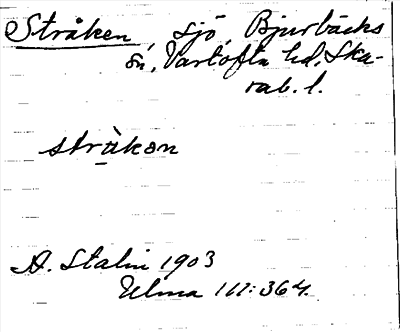 Stråken, sjö, Bjurbäcks
sn, Vartofta hd, Ska-
rab. l.
stràkən
A. Stalin 1903
Ulma 111: 364.